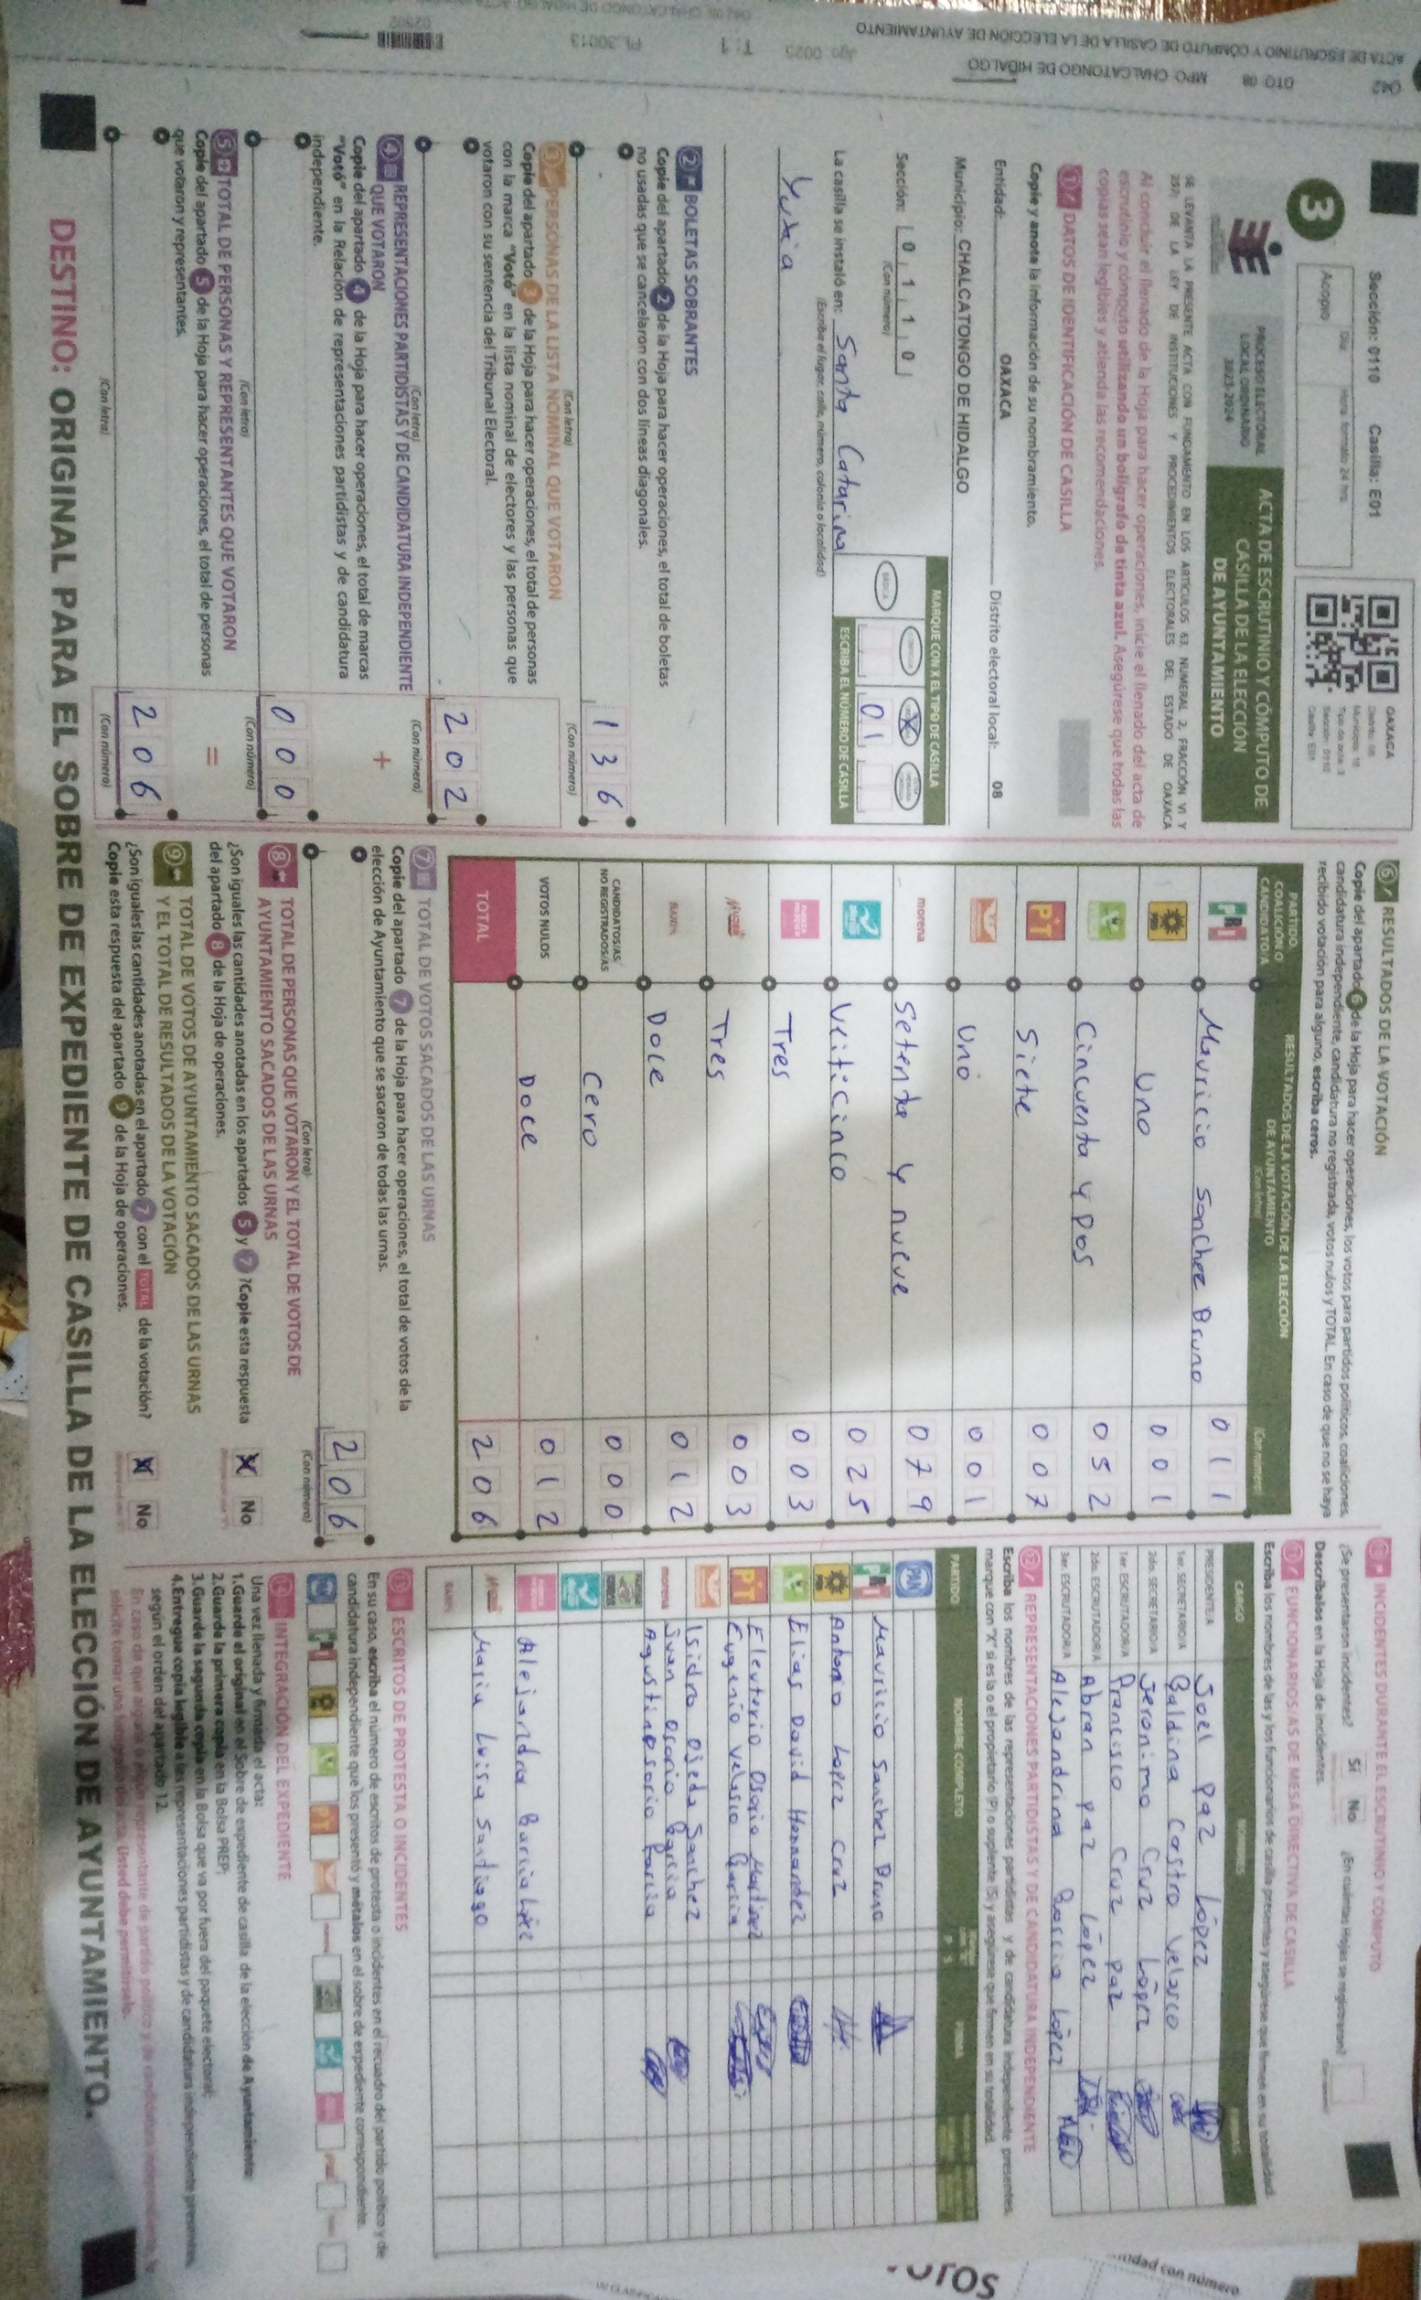 Sección: 0110 Casilla: E01
3
Acopio
PROCESO ELECTORAL
LOCAL ORDINARIO
2023-2024
ACTA DE ESCRUTINIO Y CÓMPUTO DE
CASILLA DE LA ELECCIÓN
DE AYUNTAMIENTO
OAXACA
SE LEVANTA LA PRESENTE ACTA CON FUNDAMENTO EN LOS ARTÍCULOS 63, NUMERAL 2, FRACCIÓN VI Y
DE LA LEY DE INSTITUCIONES Y PROCEDIMIENTOS ELECTORALES DEL ESTADO DE OAXACA
Al concluir el llenado de la Hoja para hacer operaciones, inicie el llenado del acta de
escrutinio y cómputo utilizando un bolígrafo de tinta azul. Asegúrese que todas las
copias sean legibles y atienda las recomendaciones.
1 DATOS DE IDENTIFICACIÓN DE CASILLA
Copie y anote la información de su nombramiento.
Entidad: OAXACA Distrito electoral local: 08
Municipio: CHALCATONGO DE HIDALGO
Sección: 0 1 1 0
(Con número)
MARQUE CON X EL TIPO DE CASILLA
X
01
ESCRIBA EL NÚMERO DE CASILLA
La casilla se instaló en: Santa Catarina
(Escriba el lugar, calle, número, colonia o localidad)
Yutxia
2 BOLETAS SOBRANTES
Copie del apartado 2 de la Hoja para hacer operaciones, el total de boletas
no usadas que se cancelaron con dos líneas diagonales.
136
(Con letra) (Con número)
3 PERSONAS DE LA LISTA NOMINAL QUE VOTARON
Copie del apartado 3 de la Hoja para hacer operaciones, el total de personas
con la marca "Votó" en la lista nominal de electores y las personas que
votaron con su sentencia del Tribunal Electoral.
202
(Con letra) (Con número)
4 REPRESENTACIONES PARTIDISTAS Y DE CANDIDATURA INDEPENDIENTE
QUE VOTARON
+
Copie del apartado 4 de la Hoja para hacer operaciones, el total de marcas
"Votó" en la Relación de representaciones partidistas y de candidatura
independiente.
000
(Con letra) (Con número)
5 TOTAL DE PERSONAS Y REPRESENTANTES QUE VOTARON
=
Copie del apartado 5 de la Hoja para hacer operaciones, el total de personas
que votaron y representantes.
206
(Con letra) (Con número)
6 RESULTADOS DE LA VOTACIÓN
Copie del apartado 6 de la Hoja para hacer operaciones, los votos para partidos políticos, coaliciones,
candidatura independiente, candidatura no registrada, votos nulos y TOTAL. En caso de que no se haya
recibido votación para alguno, escriba ceros.
PARTIDO,
COALICIÓN O
CANDIDATO/A
RESULTADOS DE LA VOTACIÓN DE LA ELECCIÓN
DE AYUNTAMIENTO
(Con letra)
(Con número)
PRI Mauricio Sanchez Bruno 011
PRD Uno 001
Cincuenta y Dos 052
PT Siete 007
Uno 001
morena Setenta y nueve 079
Veiticinco 025
Tres 003
Tres 003
Doce 012
CANDIDATOS/AS
NO REGISTRADOS/AS Cero 000
VOTOS NULOS Doce 012
TOTAL 206
7 TOTAL DE VOTOS SACADOS DE LAS URNAS
Copie del apartado 7 de la Hoja para hacer operaciones, el total de votos de la
elección de Ayuntamiento que se sacaron de todas las urnas.
206
(Con letra) (Con número)
8 TOTAL DE PERSONAS QUE VOTARON Y EL TOTAL DE VOTOS DE
AYUNTAMIENTO SACADOS DE LAS URNAS
¿Son iguales las cantidades anotadas en los apartados 5 y 7 ? Copie esta respuesta
del apartado 8 de la Hoja de operaciones.
X No
9 TOTAL DE VOTOS DE AYUNTAMIENTO SACADOS DE LAS URNAS
Y EL TOTAL DE RESULTADOS DE LA VOTACIÓN
¿Son iguales las cantidades anotadas en el apartado 7 con el TOTAL de la votación?
Copie esta respuesta del apartado 9 de la Hoja de operaciones.
X No
INCIDENTES DURANTE EL ESCRUTINIO Y CÓMPUTO
¿Se presentaron incidentes? Sí No ¿En cuántas Hojas se registraron?
Descríbalos en la Hoja de incidentes.
FUNCIONARIOS/AS DE MESA DIRECTIVA DE CASILLA
Escriba los nombres de las y los funcionarios de casilla presentes y asegúrese que firmen en su totalidad.
CARGO NOMBRES FIRMAS
PRESIDENTE/A Joel paz López
1er. SECRETARIO/A Galdina Castro Velasco
2do. SECRETARIO/A Jeronimo Cruz López
1er ESCRUTADOR/A Francisco Cruz paz
2do. ESCRUTADOR/A Abran paz López
3er. ESCRUTADOR/A Alejandrina Garcia López
12 REPRESENTACIONES PARTIDISTAS Y DE CANDIDATURA INDEPENDIENTE
Escriba los nombres de las representaciones partidistas y de candidatura independiente presentes,
marque con "X" si es la o el propietario (P) o suplente (S) y asegúrese que firmen en su totalidad.
PARTIDO NOMBRE COMPLETO P S FIRMA
PAN
PRI Mauricio Sanchez Bruno
PRD Antonio Lopez Cruz
Elias David Hernandez
PT Eleuterio Osorio Martinez
Eugenio Velasco Garcia
Isidro Ojeda Sanchez
morena Juan Osorio Garcia
Agustin Osorio Garcia
Alejandra Garcia López
Maria Luisa Santiago
ESCRITOS DE PROTESTA O INCIDENTES
En su caso, escriba el número de escritos de protesta o incidentes en el recuadro del partido político y de
candidatura independiente que los presentó y métalos en el sobre de expediente correspondiente.
INTEGRACIÓN DEL EXPEDIENTE
Una vez llenada y firmada el acta:
1.Guarde el original en el Sobre de expediente de casilla de la elección de Ayuntamiento.
2.Guarde la primera copia en la Bolsa PREP.
3.Guarde la segunda copia en la Bolsa que va por fuera del paquete electoral.
4.Entregue copia legible a las representaciones partidistas y de candidatura independiente presentes,
según el orden del apartado 12.
DESTINO: ORIGINAL PARA EL SOBRE DE EXPEDIENTE DE CASILLA DE LA ELECCIÓN DE AYUNTAMIENTO.
ACTA DE ESCRUTINIO Y CÓMPUTO DE CASILLA DE LA ELECCIÓN DE AYUNTAMIENTO
042 DTO 08 MPO CHALCATONGO DE HIDALGO
T: 1